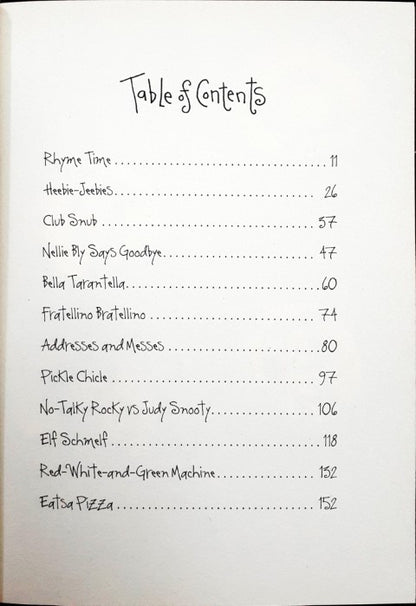 Table of Contents
Rhyme Time ................................ 11
Heebie-Jeebies................................ 26
Club Snub ................................ 37
Nellie Bly Says Goodbye........................ 47
Bella Tarantella................................60
Fratellino Bratellino ........................... 74
Addresses and Messes .........................80
Pickle Chicle ................................ 97
No-Talky Rocky vs Judy Snooty................. 106
Elf Schmelf ................................ 118
Red-White-and-Green Machine................ 132
Eatsa Pizza ................................ 152